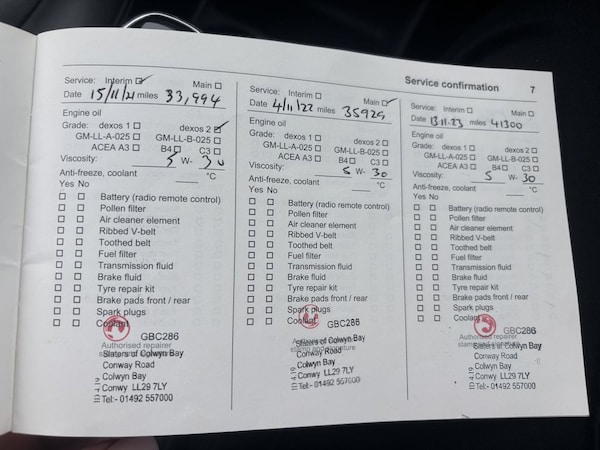 Service confirmation 7
Service: Interim ☑ Main ☐
Date 15/11/21 miles 33,994
Engine oil
Grade: dexos 1 ☐ dexos 2 ☑
GM-LL-A-025 ☐ GM-LL-B-025 ☐
ACEA A3 ☐ B4 ☐ C3 ☐
Viscosity: 5 W- 30
Anti-freeze, coolant °C
Yes No
☐ ☐ Battery (radio remote control)
☐ ☐ Pollen filter
☐ ☐ Air cleaner element
☐ ☐ Ribbed V-belt
☐ ☐ Toothed belt
☐ ☐ Fuel filter
☐ ☐ Transmission fluid
☐ ☐ Brake fluid
☐ ☐ Tyre repair kit
☐ ☐ Brake pads front / rear
☐ ☐ Spark plugs
☐ ☐ Coolant
GBC286
Authorised repairer
Slaters of Colwyn Bay
Conway Road
Colwyn Bay
Conwy LL29 7LY
Tel:- 01492 557000
Service: Interim ☐ Main ☑
Date 4/11/22 miles 35929
Engine oil
Grade: dexos 1 ☐ dexos 2 ☐
GM-LL-A-025 ☐ GM-LL-B-025 ☐
ACEA A3 ☐ B4 ☐ C3 ☐
Viscosity: 5 W- 30
Anti-freeze, coolant °C
Yes No
☐ ☐ Battery (radio remote control)
☐ ☐ Pollen filter
☐ ☐ Air cleaner element
☐ ☐ Ribbed V-belt
☐ ☐ Toothed belt
☐ ☐ Fuel filter
☐ ☐ Transmission fluid
☐ ☐ Brake fluid
☐ ☐ Tyre repair kit
☐ ☐ Brake pads front / rear
☐ ☐ Spark plugs
☐ ☐ Coolant
GBC286
Slaters of Colwyn Bay
stamp and signature
Conway Road
Colwyn Bay
Conwy LL29 7LY
Tel:- 01492 557000
Service: Interim ☐ Main ☐
Date 13.11.23 miles 41300
Engine oil
Grade: dexos 1 ☐ dexos 2 ☐
GM-LL-A-025 ☐ GM-LL-B-025 ☐
ACEA A3 ☐ B4 ☐ C3 ☐
Viscosity: 5 W- 30
Anti-freeze, coolant °C
Yes No
☐ ☐ Battery (radio remote control)
☐ ☐ Pollen filter
☐ ☐ Air cleaner element
☐ ☐ Ribbed V-belt
☐ ☐ Toothed belt
☐ ☐ Fuel filter
☐ ☐ Transmission fluid
☐ ☐ Brake fluid
☐ ☐ Tyre repair kit
☐ ☐ Brake pads front / rear
☐ ☐ Spark plugs
☐ ☐ Coolant
GBC286
Slaters of Colwyn Bay
Conway Road
Colwyn Bay
Conwy LL29 7LY
Tel:- 01492 557000